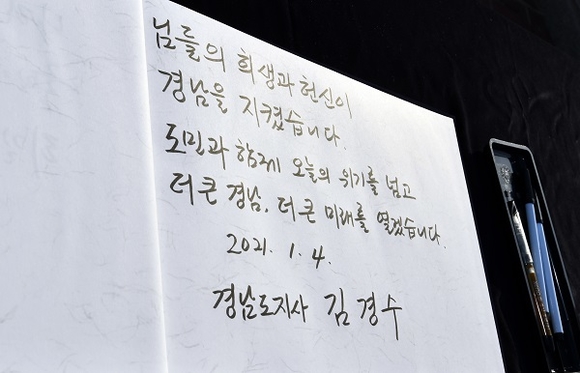 님들의 희생과 헌신이
경남을 지켰습니다.
도민과 함께 오늘의 위기를 넘고
더 큰 경남, 더 큰 미래를 열겠습니다.
2021. 1. 4.
경남도지사 김경수